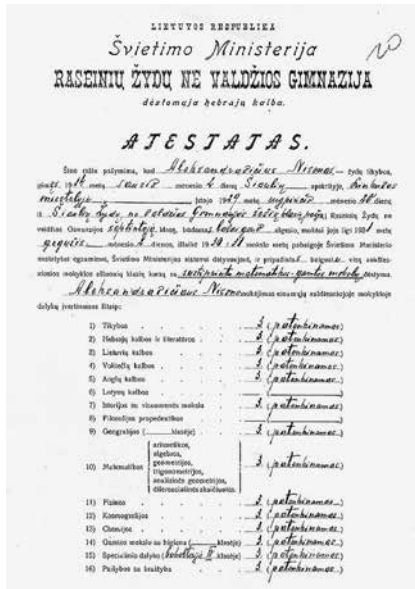 LIETUVOS RESPUBLIKA
Švietimo Ministerija
RASEINIŲ ŽYDŲ NE VALDŽIOS GIMNAZIJA
dėstomąja hebrajų kalba.
ATESTATAS.
Šiuo raštu pažymima, kad Aleksandravičius Nisonas — žydų tikybos,
gimęs 1914 metų sausio mėnesio 2 dieną Šiaulių apskrityje,
miestelyje, įstojo 1929 metų rugpiučio mėnesio dieną
iš Šiaulių Žydų ne valdžios Gimnazijos Raseinių Žydų ne
valdžios Gimnazijos septintąją klasę, būdamas elgesio, mokėsi joje ligi 1931 metų
gegužės mėnesio 2 dienos, išlaikė 1930-31 mokslo metų pabaigoje Švietimo Ministerio
nustatytus egzaminus, Švietimo Ministerijos
sustiprintu matematikos-gamtos mokslų dėstymu.
Aleksandravičiaus Nisono mokėjimas einamųjų aukštesniojoje mokykloje
dalykų įvertinamas šitaip:
1) Tikybos 3 (patenkinamas)
2) Hebrajų kalbos ir literatūros 3 (patenkinamas)
3) Lietuvių kalbos 3 (patenkinamas)
4) Vokiečių kalbos 3 (patenkinamas)
5) Anglų kalbos 3 (patenkinamas)
6) Lotynų kalbos
7) Istorijos su visuomenės mokslu 3 (patenkinamas)
8) Filosofijos propedeutikos
9) Geografijos ( klasėje) 3 (patenkinamas)
10) Matematikos { aritmetikos,
algebros,
geometrijos,
trigonometrijos,
analizinės geometrijos,
diferencialinės skaičiuotės. 3 (patenkinamas)
11) Fizikos 3 (patenkinamas)
12) Kosmografijos 3 (patenkinamas)
13) Chemijos 3 (patenkinamas)
14) Gamtos mokslo su higiena ( klasėje) 3 (patenkinamas)
15) Specialinio dalyko ( klasėje) 3 (patenkinamas)
16) Paišybos su braižyba 3 (patenkinamas)